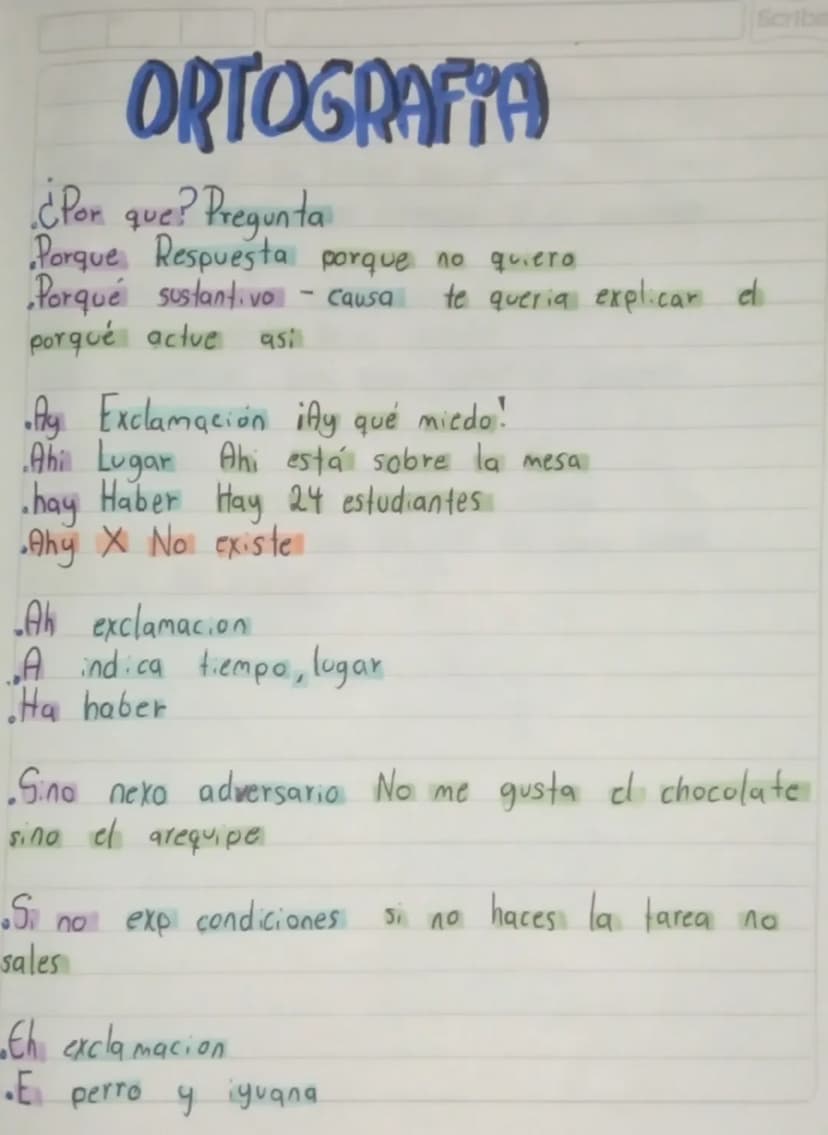 Scribe
ORTOGRAFíA
.¿Por que? Pregunta
.Porque Respuesta porque no quiero
.Porqué sustantivo - causa te queria explicar el
porqué actue asi
.Ay Exclamación ¡Ay qué miedo!
.Ahi Lugar Ahi está sobre la mesa
.hay Haber Hay 24 estudiantes
.Ahy X No existe
.Ah exclamacion
.A indica tiempo, lugar
.Ha haber
.Sino nexo adversario No me gusta el chocolate
sino el arequipe
.Si no exp condiciones si no haces la tarea no
sales
.Eh exclamacion
.E perro y iguana